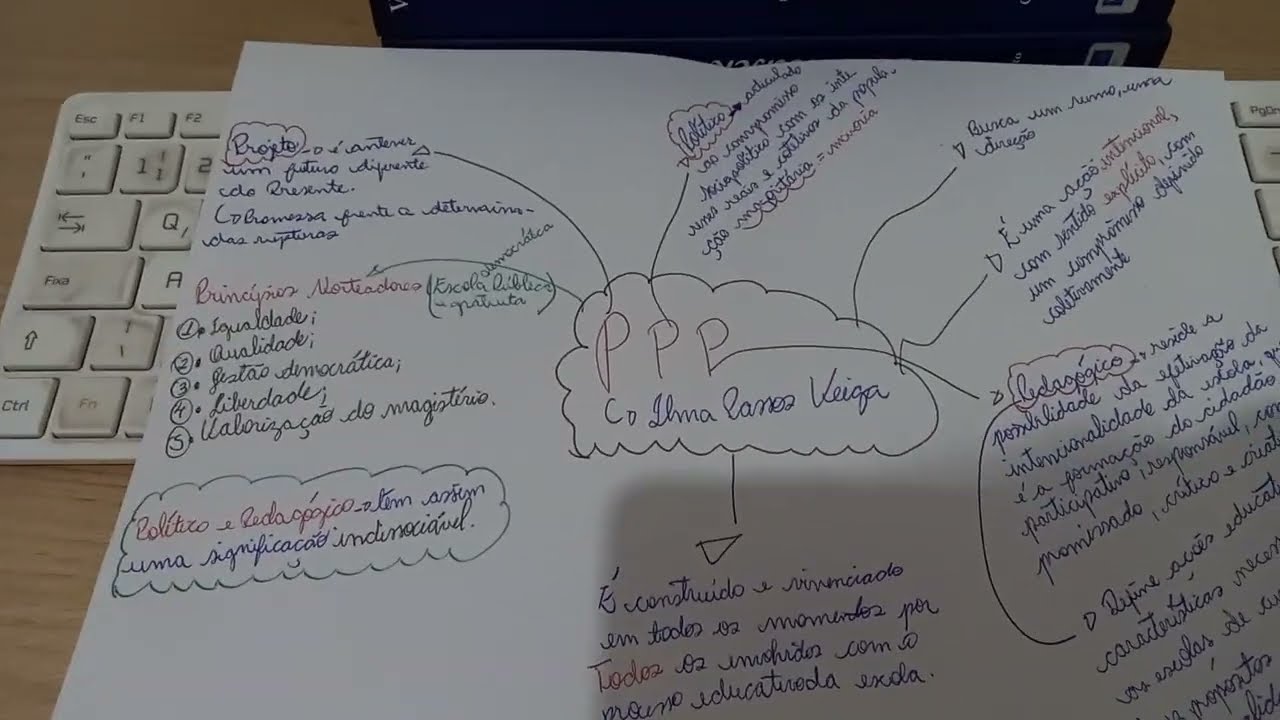 Projeto → é antever
um futuro diferente
do Presente.
↳ Promessa frente a determina-
das rupturas
Princípios Norteadores (Escola Pública
democrática
- gratuita)
1. Igualdade;
2. Qualidade;
3. gestão democrática;
4. Liberdade;
5. Valorização do magistério.
Político e Pedagógico → têm assim
uma significação indissociável.
Político → articulado
ao compromisso
sociopolítico com os inte
resses reais e coletivos da popula-
ção majoritária = maioria
Busca um rumo, uma
direção
É uma ação intencional,
com sentido explícito, com
um compromisso definido
coletivamente
PPP
↳ Ilma Passos Veiga
Pedagógico → reside a
possibilidade da efetivação da
intencionalidade da escola, que
é a formação do cidadão
participativo, responsável, com
promissado, crítico e criat
Define ações educat
características neces
as escolas de
propósitos
É construído e vivenciado
em todos os momentos por
Todos os envolvidos com o
processo educativo da escola.
Esc
F1
F2
Q
Fixa
A
Ctrl
Fn
PgDn